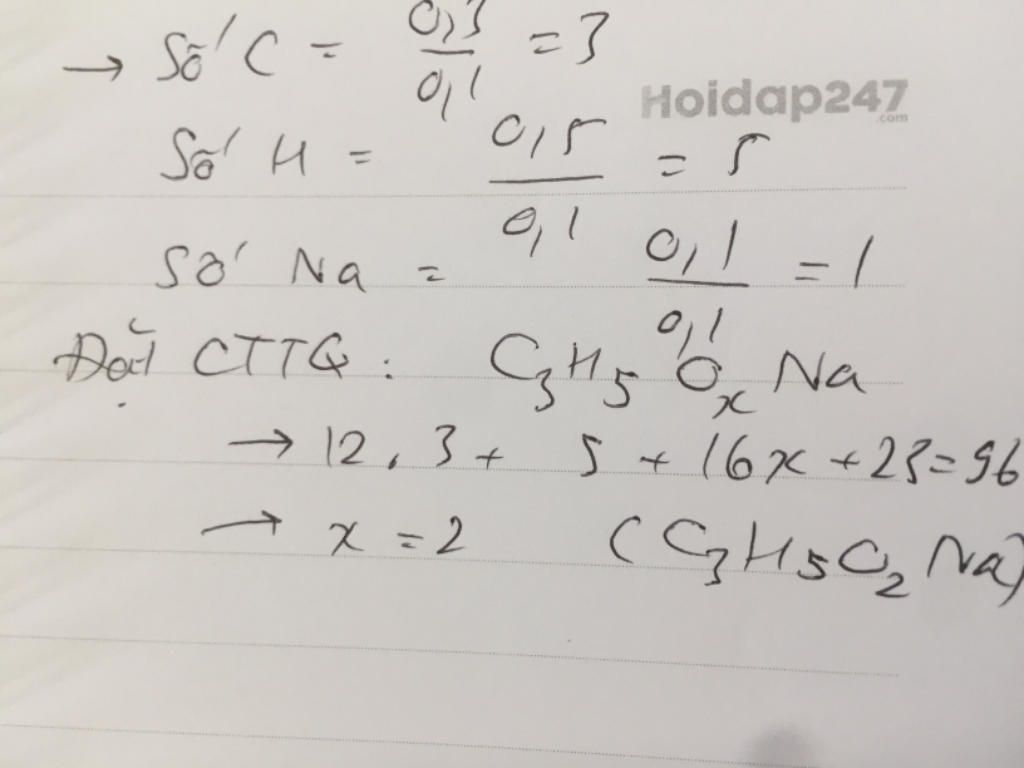 → Số C = 0,3/0,1 = 3
Hoidap247
.com
Số H = 0,5/0,1 = 5
Số Na = 0,1/0,1 = 1
Đặt CTTQ : C₃H₅OₓNa
→ 12.3 + 5 + 16x + 23 = 96
→ x = 2 (C₃H₅O₂Na)